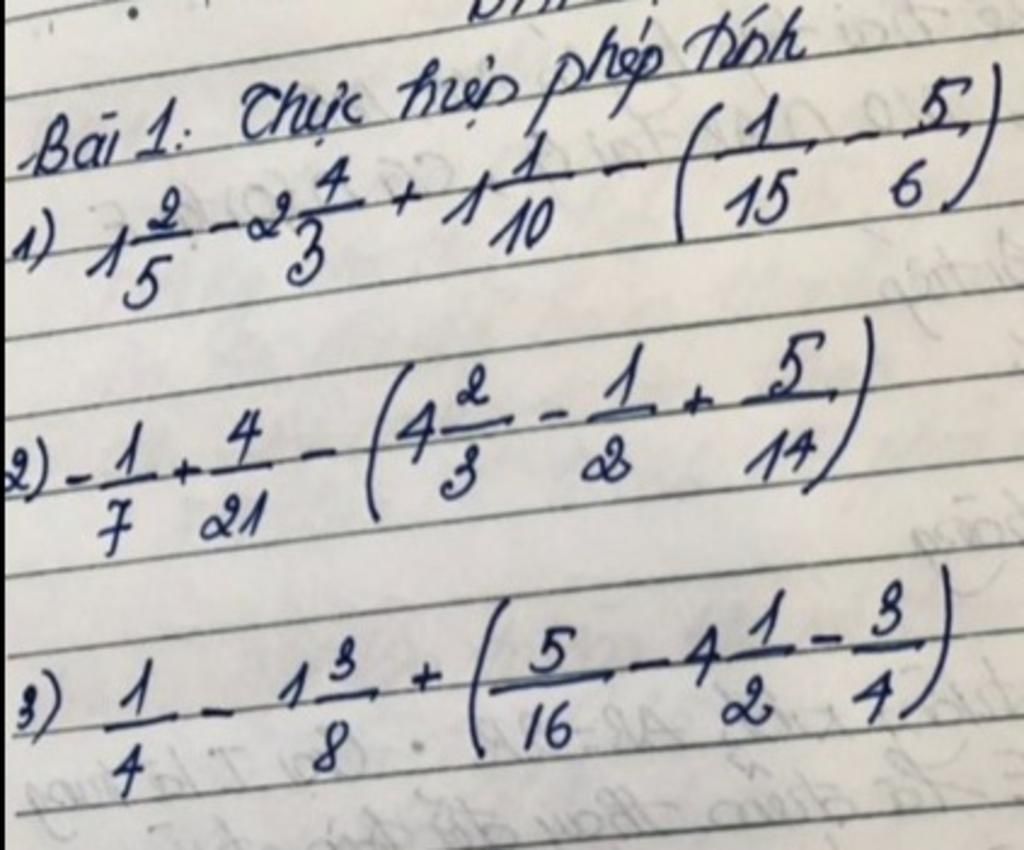 Bài 1: Thực hiện phép tính
1) 1 2/5 - 2 4/3 + 1 1/10 - (1/15 - 5/6)
2) - 1/7 + 4/21 - (4 2/3 - 1/2 + 5/14)
3) 1/4 - 1 3/8 + (5/16 - 4 1/2 - 3/4)